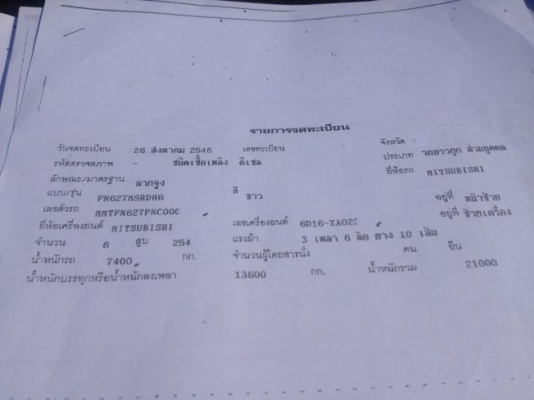 รายการจดทะเบียน
วันจดทะเบียน 26 สิงหาคม 2546 เลขทะเบียน จังหวัด
รหัสตรวจสภาพ - ชนิดเชื้อเพลิง ดีเซล ประเภท รถบรรทุก ส่วนบุคคล
ลักษณะ/มาตรฐาน ลากจูง ยี่ห้อรถ MITSUBISHI
แบบ/รุ่น FN627MSRDH6 สี ขาว
เลขตัวรถ MMTFN627PNC000 อยู่ที่ หน้าซ้าย
ยี่ห้อเครื่องยนต์ MITSUBISHI เลขเครื่องยนต์ 6D16-XA022 อยู่ที่ ซ้ายเครื่อง
จำนวน 6 สูบ 254 แรงม้า 3 เพลา 6 ล้อ ยาง 10 เส้น
น้ำหนักรถ 7400 กก. จำนวนผู้โดยสารนั่ง คน ยืน
น้ำหนักบรรทุกหรือน้ำหนักลงเพลา 13600 กก. น้ำหนักรวม 21000